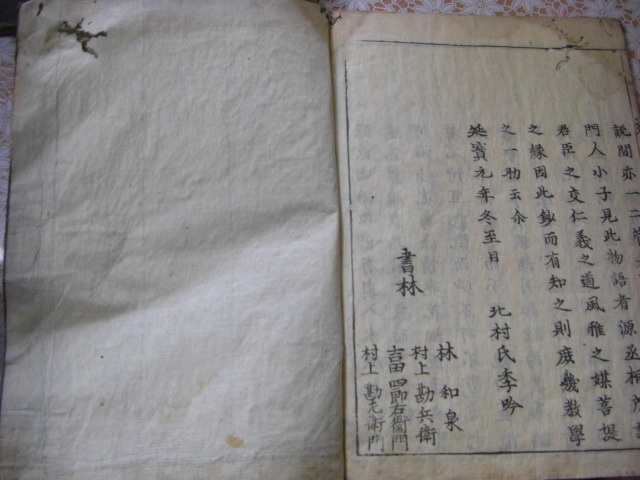 説間亦一二
門人小子見此物語者源
君臣之交仁義之道風雅之媒菩提
之縁因此鈔而有知之則庶幾教學
之一助云尒
延寳元年冬至日
北村氏季吟
書林
林和泉
村上勘兵衛
吉田四郎右衞門
村上勘左衛門